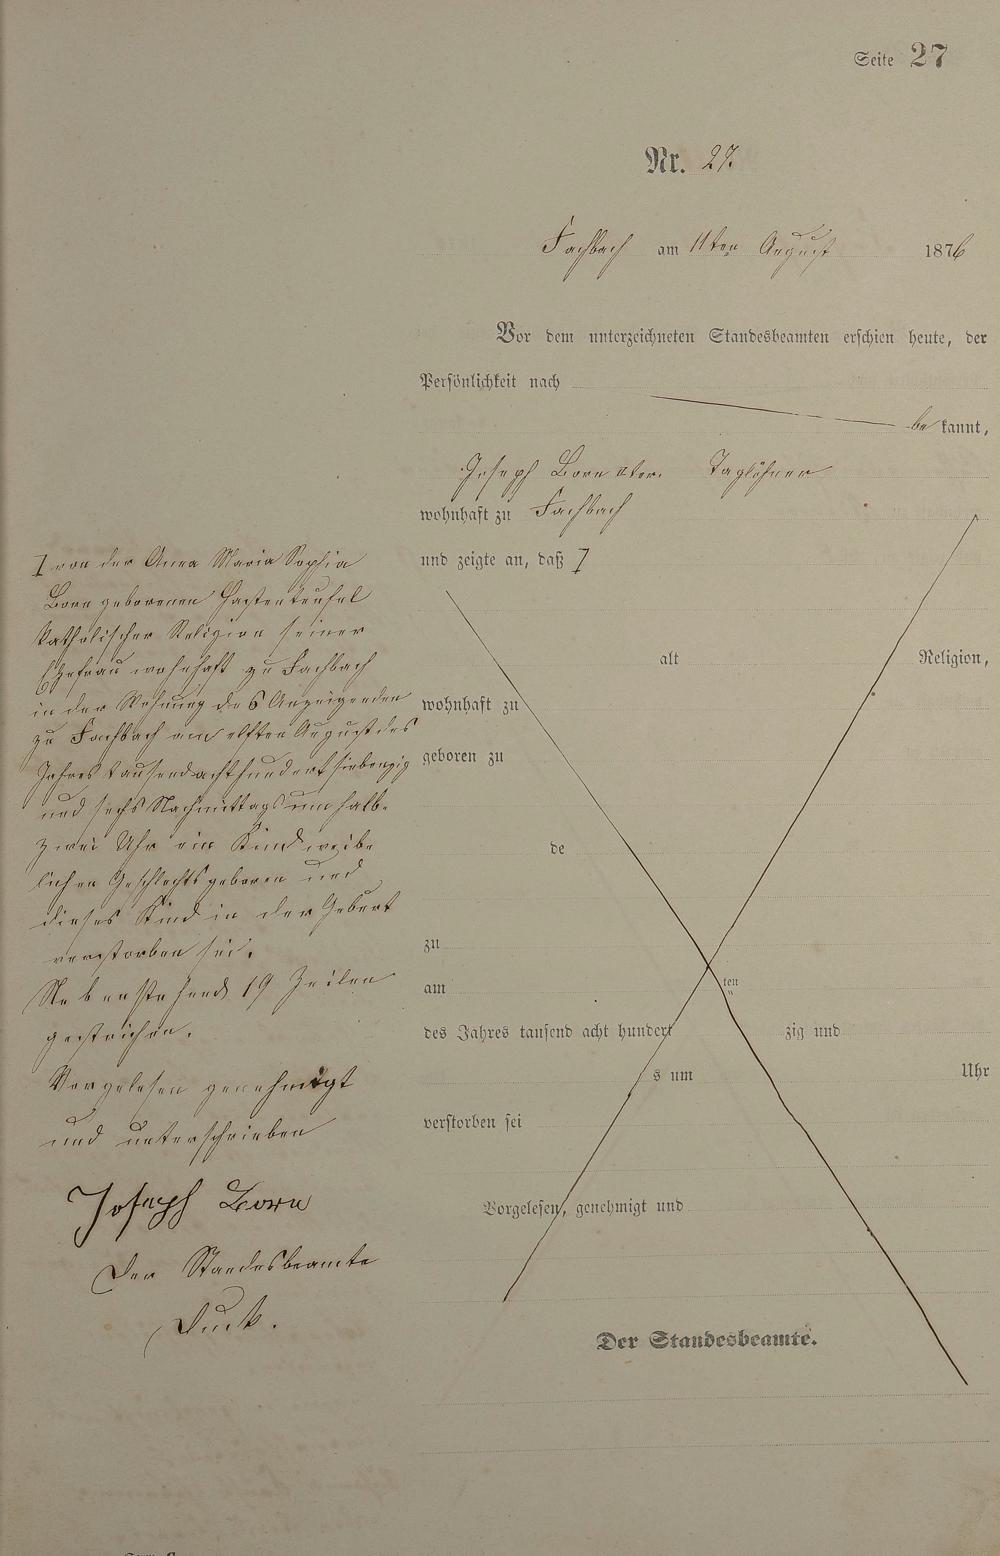 Seite 27
Nr. 27.
Fachbach am 11ten August 1876
Vor dem unterzeichneten Standesbeamten erschien heute, der
Persönlichkeit nach
bekannt,
Joseph Born 2ter. Taglöhner
wohnhaft zu Fachbach
und zeigte an, daß ⁊
alt Religion,
wohnhaft zu
geboren zu
de
zu
am ten
des Jahres tausend acht hundert zig und
s um Uhr
verstorben sei
Vorgelesen, genehmigt und
Der Standesbeamte.
⁊ von der Anna Maria Sophia
Born geborenen Hastenteufel
katholischer Religion seiner
Ehefrau wohnhaft zu Fachbach
in der Wohnung des Anzeigenden
zu Fachbach am elften August des
Jahres tausendachthundert siebenzig
und sechs Nachmittags um halb-
zwei Uhr ein Kind weib-
lichen Geschlechts geboren und
dieses Kind in der Geburt
verstorben sei.
Nebenstehend 19 Zeilen
gestrichen.
Vorgelesen genehmigt
und unterschrieben
Joseph Born
Der Standesbeamte